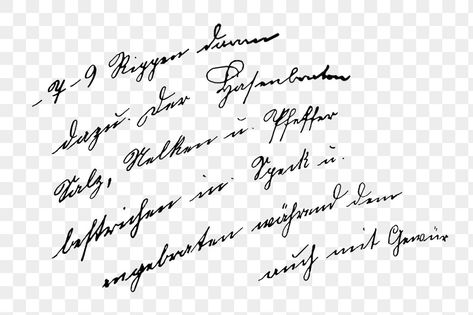 -7-9 Rippen daran
dazu. Der Hasenbraten
Salz, Nelken u. Pfeffer
bestrichen in Speck u.
angebraten während dem
auch mit Gewür